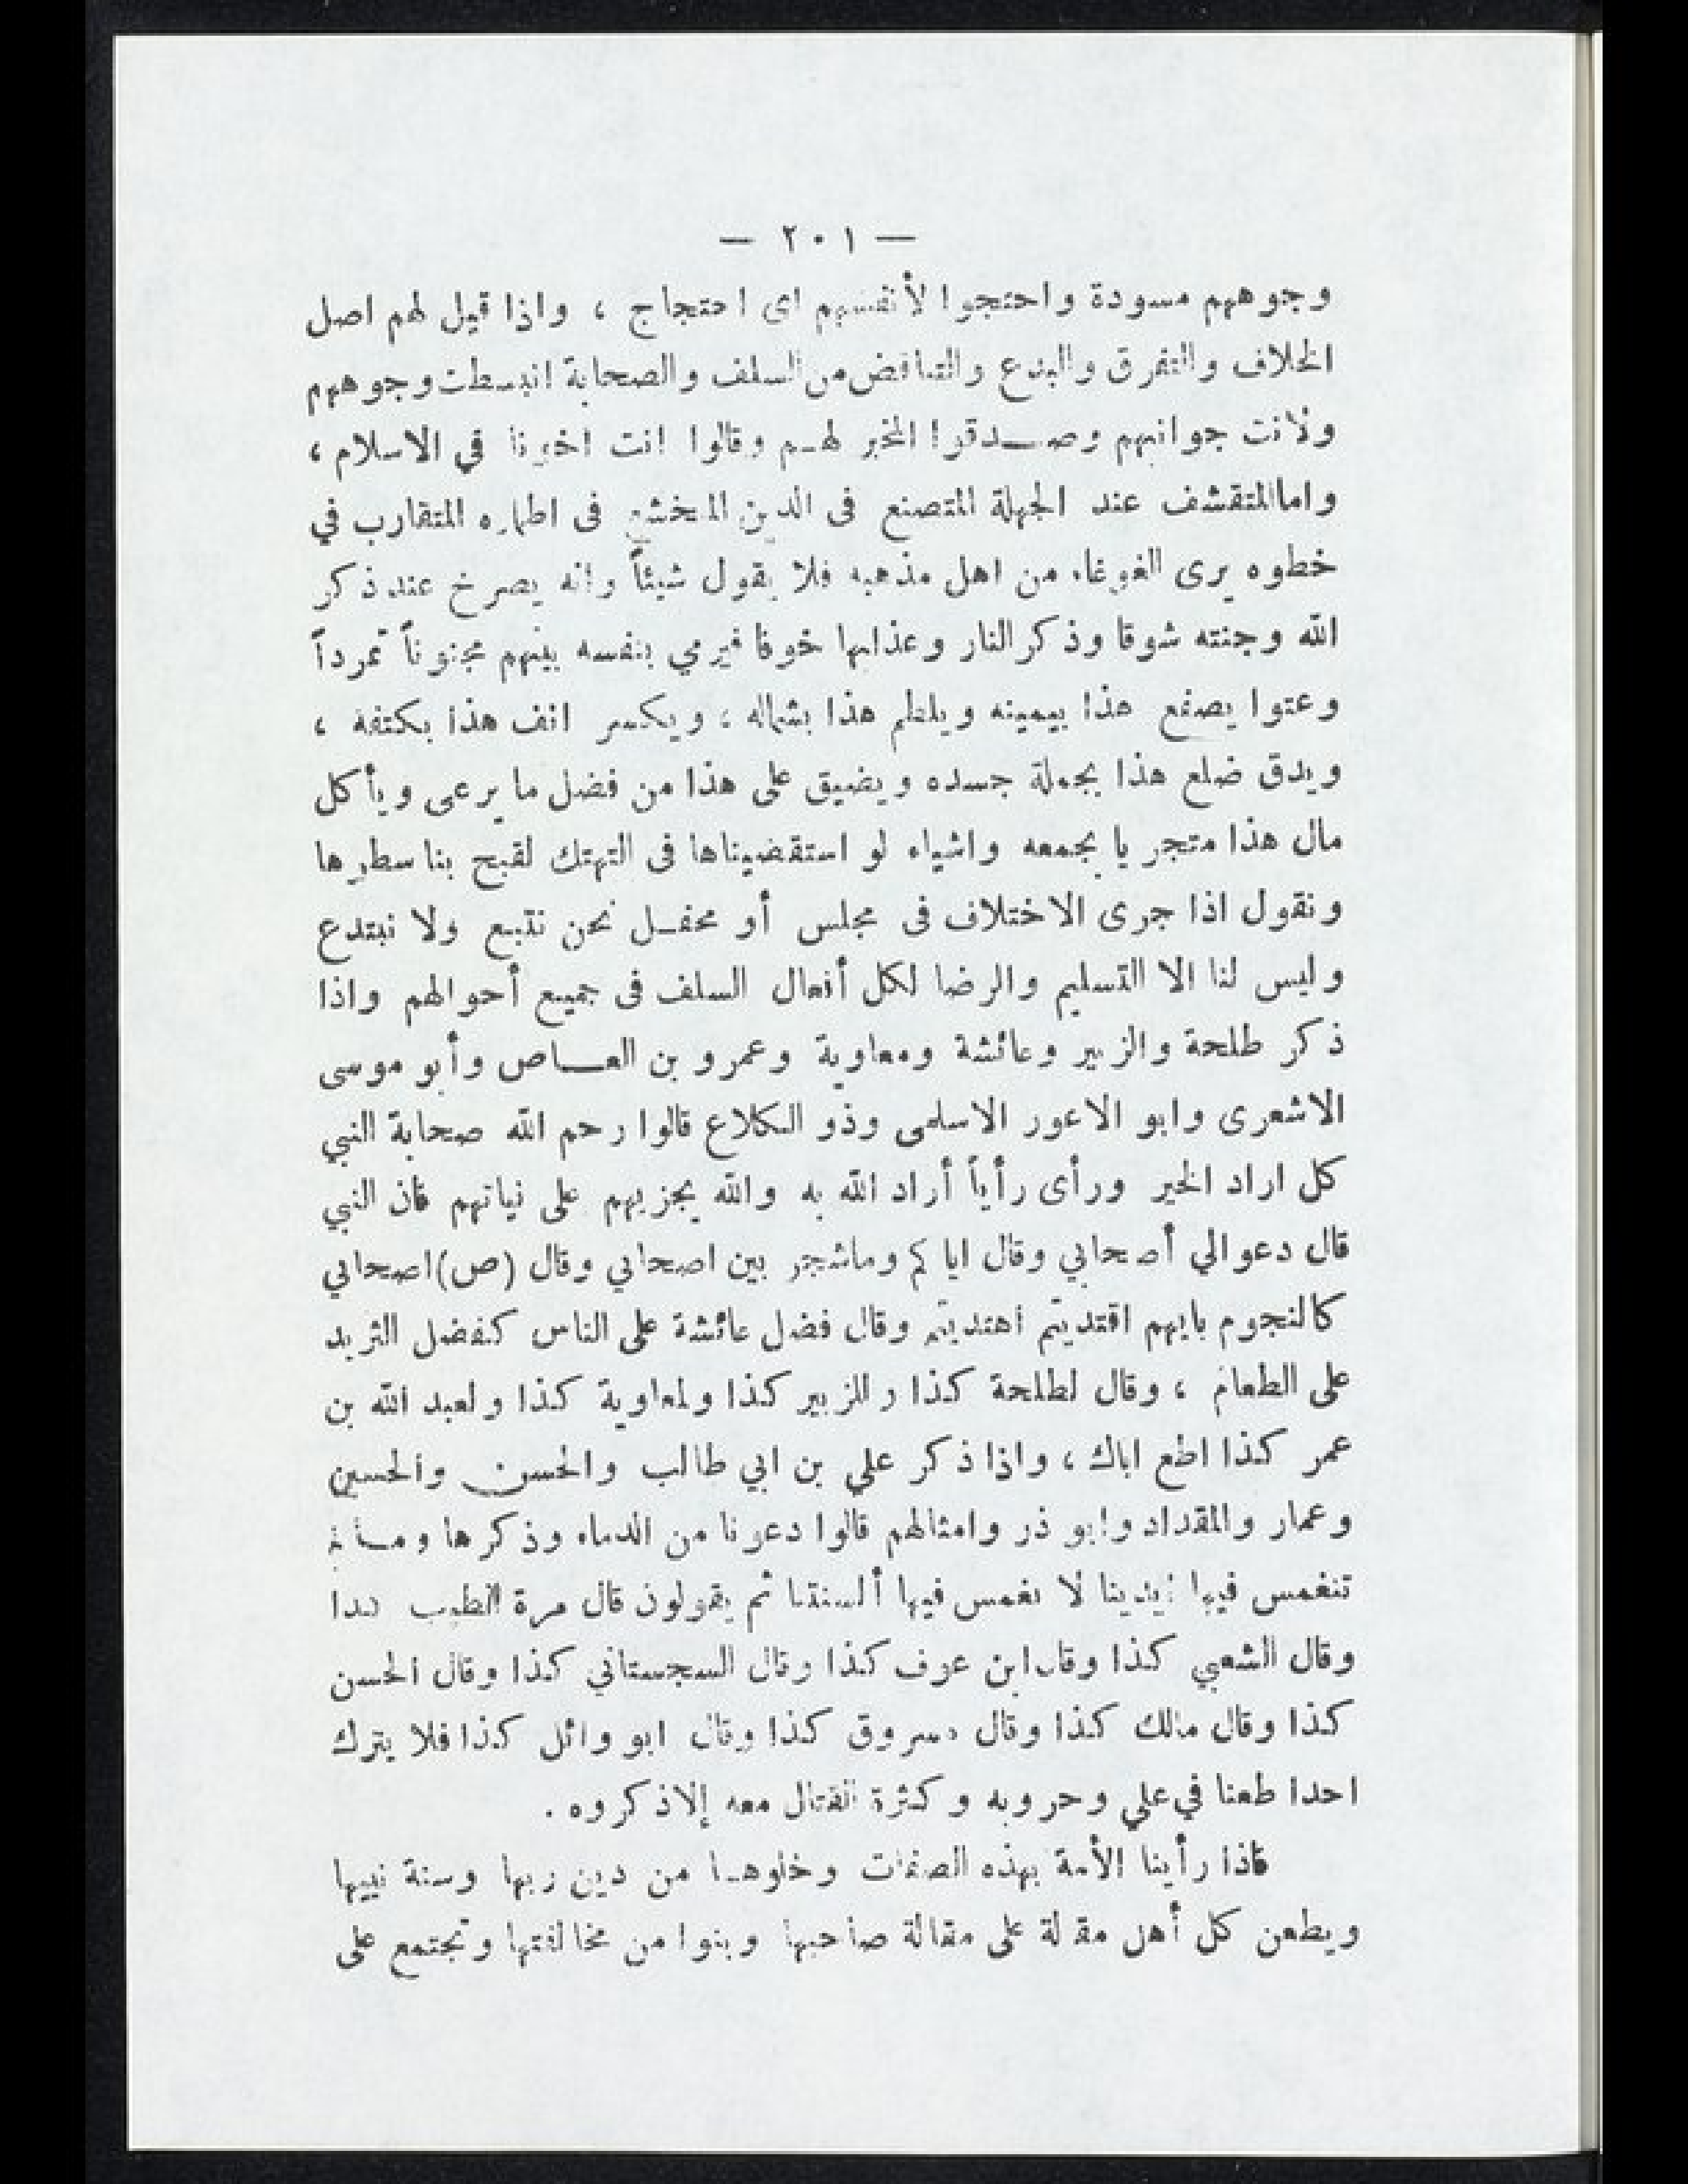 — ٢٠١ —
وجوههم مسودة واحتجوا لأنفسهم اى احتجاج ، واذا قيل لهم اصل
الخلاف والتفرق والبدع والتناقض من السلف والصحابة انبسطت وجوههم
ولانت جوانبهم وصـــدقوا المخبر لهـم وقالوا انت اخونا في الاسلام ،
واماالمتقشف عند الجهلة المتصنع فى الدين المتخشع فى اطماره المتقارب في
خطوه يرى الغوغاء من اهل مذهبه فلا يقول شيئاً وانه يصرخ عند ذكر
الله وجنته شوقا وذكر النار وعذابها خوفا فيرمي بنفسه بينهم مجنوناً تمرداً
وعتوا يصفع هذا بيمينه ويلطم هذا بشماله ، ويكسر انف هذا بكتفه ،
ويدق ضلع هذا بجملة جسده ويضيق على هذا من فضل ما يرعى ويأكل
مال هذا متجريا بجمعه واشياء لو استقضيناها فى التهتك لقبح بنا سطرها
ونقول اذا جرى الاختلاف فى مجلس أو محفـل نحن نتبع ولا نبتدع
وليس لنا الا التسليم والرضا لكل أفعال السلف فى جميع أحوالهم واذا
ذكر طلحة والزبير وعائشة ومعاوية وعمرو بن العـــاص وأبو موسى
الاشعرى وابو الاعور الاسلمى وذو الكلاع قالوا رحم الله صحابة النبي
كل اراد الخير ورأى رأياً أراد الله به والله يجزيهم على نياتهم فان النبي
قال دعوالي أصحابي وقال اياكم وماشجر بين اصحابي وقال (ص) اصحابي
كالنجوم بايهم اقتديتم اهتديتم وقال فضل عائشة على الناس كفضل الثريد
على الطعام ، وقال لطلحة كذا وللزبير كذا ولمعاوية كذا ولعبد الله بن
عمر كذا اطع اباك ، واذا ذكر علي بن ابي طالب والحسن والحسين
وعمار والمقداد وابو ذر وامثالهم قالوا دعونا من الدماء وذكرها
تنغمس فيها ايدينا لا نغمس فيها ألسنتنا ثم يقولون قال مرة الطيب كذا
وقال الشعبي كذا وقال ابن عوف كذا وقال السجستاني كذا وقال الحسن
كذا وقال مالك كذا وقال مسروق كذا وقال ابو وائل كذا فلا يترك
احدا طعنا في علي وحروبه وكثرة القتال معه إلاذكروه .
فاذا رأينا الأمة بهذه الصفات وخلوهـا من دين ربها وسنة نبيها
ويطعن كل أهل مقالة على مقالة صاحبها وبنوا من مخالفتها وتجتمع على